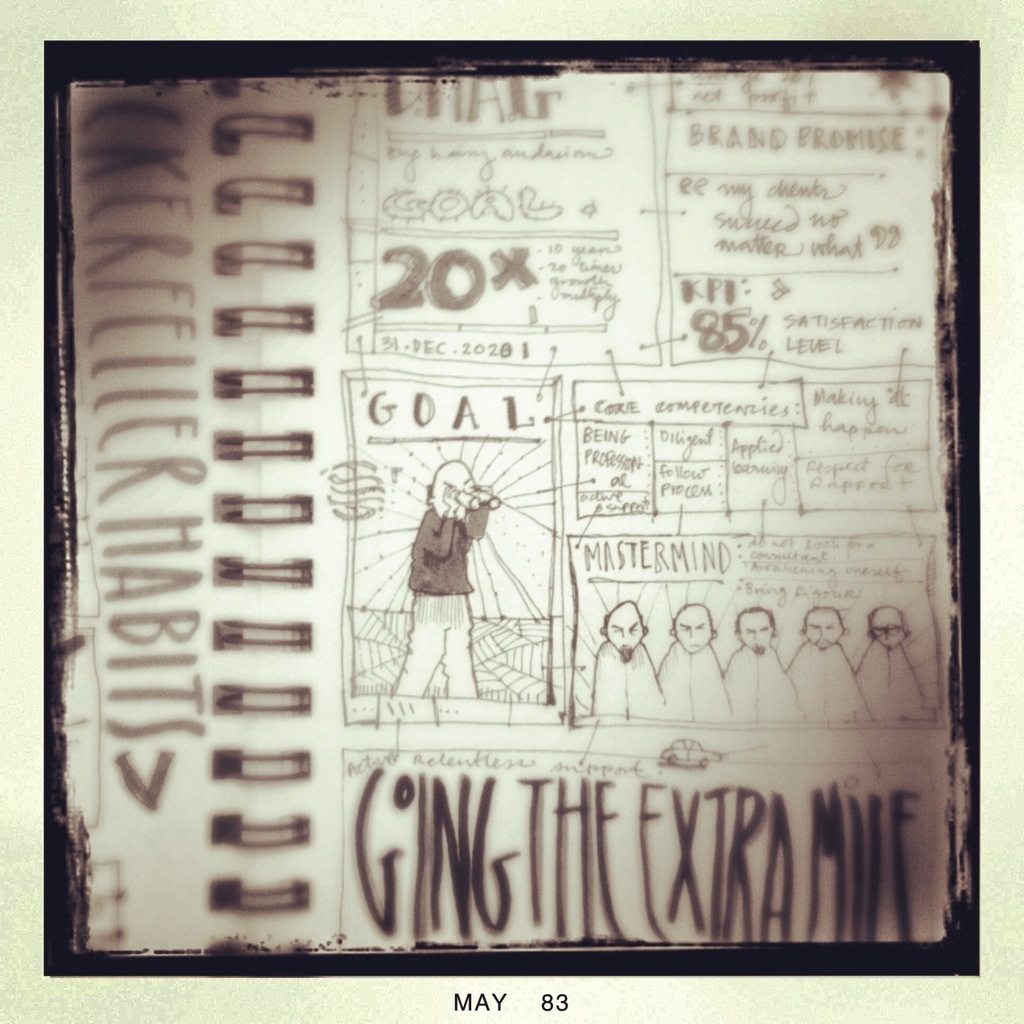 net profit
BRAND PROMISE:
my clients
succeed no
matter what
KPI:
85% SATISFACTION
LEVEL
BHAG
big hairy audacious
GOAL
20x
10 years
20 times
growth
multiply
31.DEC.2020 1
GOAL
CORE COMPETENCIES:
BEING
PROFESSION
al
active
& support
Diligent
follow
PROCESS
Applied
learning
Making it
happen
Respect for
Rapport
MASTERMIND
do not look for a
consultant
Awakening oneself
Being rigour
Active Relentless support
GOING THE EXTRA MILE
HABITS
MAY 83